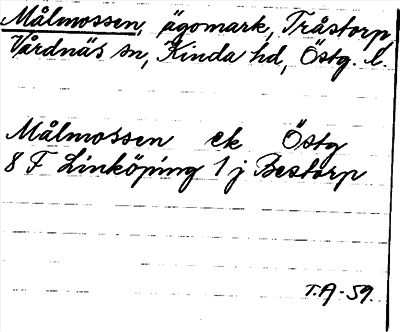 Målmossen, ägomark, Tråstorp,
Vårdnäs sn, Kinda hd, Östg. l.
Målmossen ek Östg
8 F Linköping 1 j Bestorp
T.A-59.